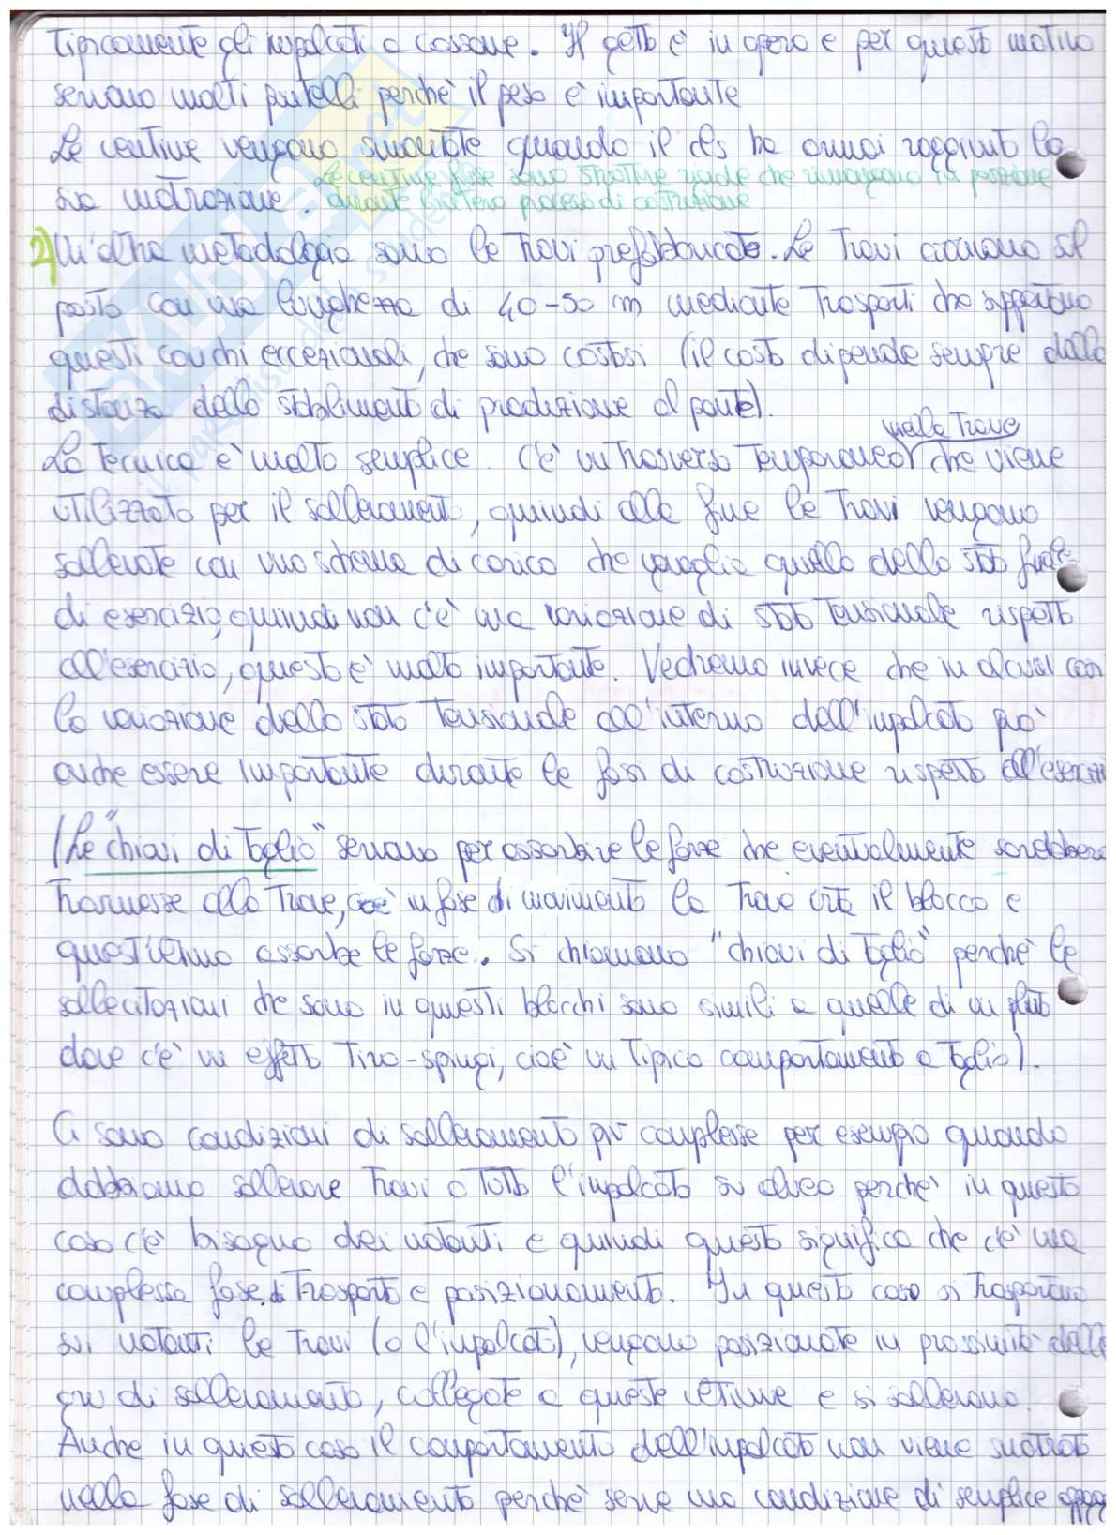 Tipicamente gli impalcati a cassone. Il getto è in opera e per questo motivo
servono molti puntelli perché il peso è importante
Le centine vengono smontate quando il cls ha ormai raggiunto la
Le centine fisse sono strutture rigide che rimangono in posizione
sua maturazione. durante l'intero processo di costruzione
2) Un'altra metodologia sono le travi prefabbricate. Le travi arrivano sul
posto con una lunghezza di 40-50 m mediante trasporti che sopportano
questi carichi eccezionali, che sono costosi (il costo dipende sempre dalla
distanza dello stabilimento di produzione al ponte).
nella trave
La tecnica è molto semplice. C'è un trasverso temporaneo che viene
utilizzato per il sollevamento, quindi alla fine le travi vengono
sollevate con uno schema di carico che uguaglia quello dello stato finale
di esercizio, quindi non c'è una variazione di stato tensionale rispetto
all'esercizio, questo è molto importante. Vedremo invece che in alcuni casi
la variazione dello stato tensionale all'interno dell'impalcato può
anche essere importante durante le fasi di costruzione rispetto all'esercizio
(Le "chiavi di taglio" servono per assorbire le forze che eventualmente sarebbero
trasmesse alla trave, cioè in fase di movimento la trave urta il blocco e
quest'ultimo assorbe le forze. Si chiamano "chiavi di taglio" perché le
sollecitazioni che sono in questi blocchi sono simili a quelle di un
dove c'è un effetto tiro-spingi, cioè un tipico comportamento a taglio).
Ci sono condizioni di sollevamento più complesse per esempio quando
dobbiamo sollevare travi o tutto l'impalcato su alveo perché in questo
caso c'è bisogno dei natanti e quindi questo significa che c'è una
complessa fase di trasporto e posizionamento. In questo caso si trasportano
sui natanti le travi (o l'impalcato), vengono posizionate in prossimità delle
gru di sollevamento, collegate a queste ultime e si sollevano.
Anche in questo caso il comportamento dell'impalcato non viene snaturato
nella fase di sollevamento perché serve una condizione di semplice